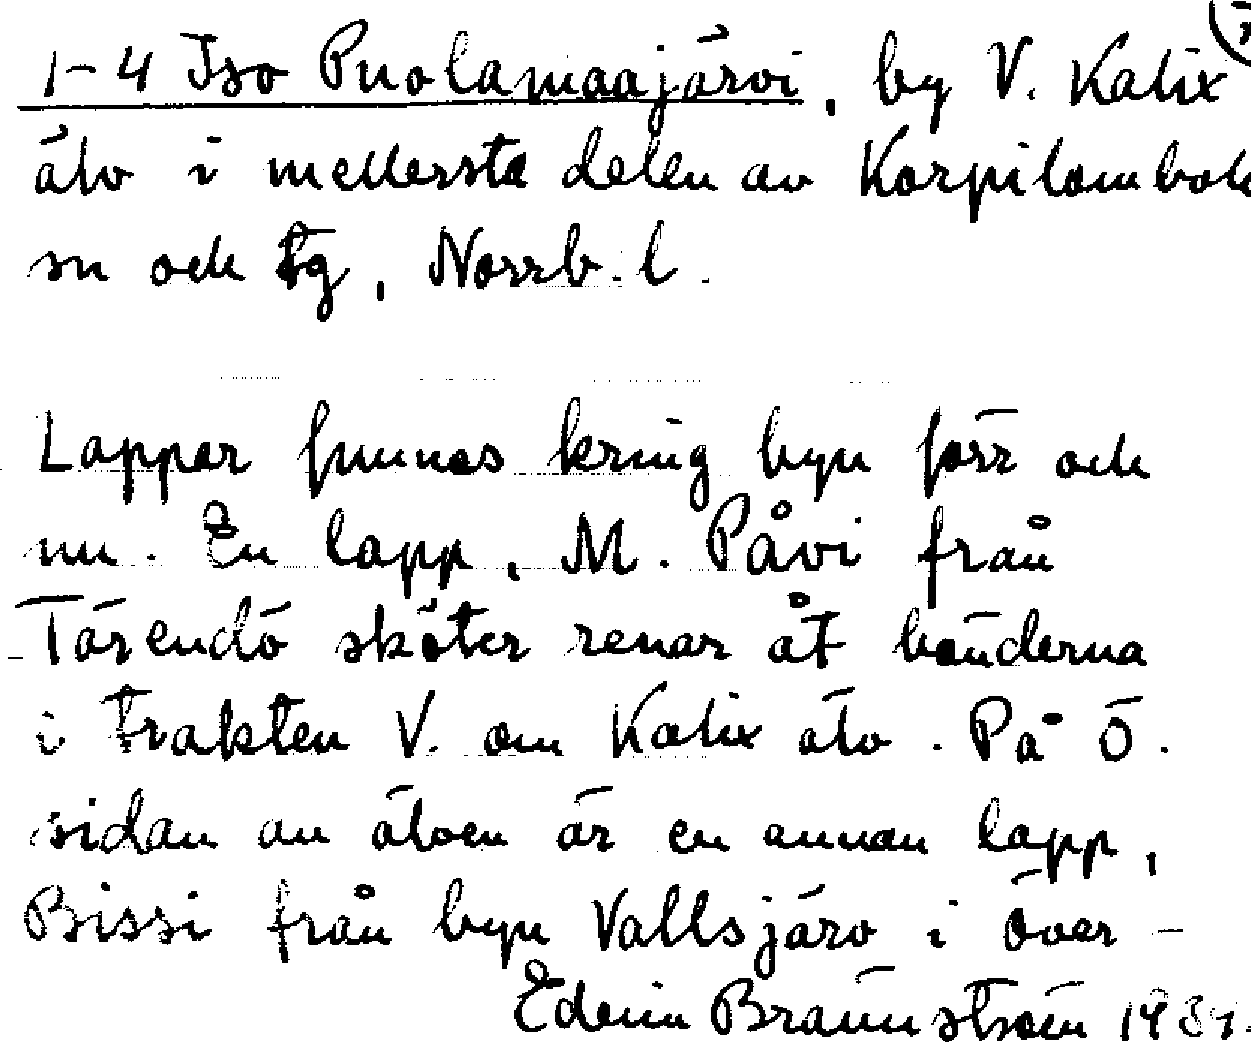 1-4 Iso Puolamaajärvi, by V. Kalix
älv i mellersta delen av Korpilombolo
sn och tg, Norrb. l.
Lappar funnos kring byn förr och
nu. En lapp, M. Påvi från
Tärendö sköter renar åt bönderna
i trakten V. om Kalix älv. På Ö.
sidan av älven är en annan lapp,
Bissi från byn Vallsjärv i Över-
Edvin Brännström 1931.